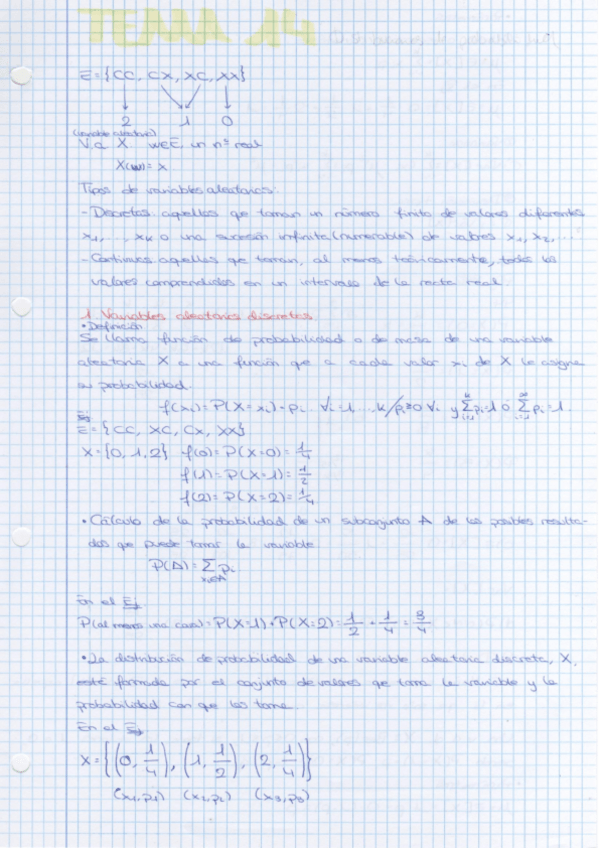 TEMA 14
E = {CC, CX, XC, XX}
2 1 0
(variable aleatoria)
V.a X w∈E un nº real
X(w) = x
Tipos de variables aleatorias:
- Discretas: aquellas que toman un número finito de valores diferentes
x₁, ..., xₖ o una sucesión infinita (numerable) de valores x₁, x₂, ...
- Continuas: aquellas que toman, al menos teóricamente, todos los
valores comprendidos en un intervalo de la recta real.
1. Variables aleatorias discretas.
• Definición
Se llama función de probabilidad o de masa de una variable
aleatoria X a una función que a cada valor xᵢ de X le asigna
su probabilidad.
f(xᵢ) = P(X = xᵢ) = pᵢ ∀i = 1 ... k / pᵢ ≥ 0 ∀i y ∑ᵢ₌₁ᵏ pᵢ = 1 ó ∑ᵢ₌₁^∞ pᵢ = 1.
Ej
E = {CC, XC, CX, XX}
X = {0, 1, 2} f(0) = P(X=0) = 1/4
f(1) = P(X=1) = 1/2
f(2) = P(X=2) = 1/4
• Cálculo de la probabilidad de un subconjunto A de los posibles resulta-
dos que puede tomar la variable
P(A) = ∑ pᵢ
xᵢ∈A
En el Ej.
P(al menos una cara) = P(X=1) + P(X=2) = 1/2 + 1/4 = 3/4
• La distribución de probabilidad de una variable aleatoria discreta, X,
está formada por el conjunto de valores que toma la variable y la
probabilidad con que los toma.
En el Ej
X = {(0, 1/4), (1, 1/2), (2, 1/4)}
(x₁,p₁) (x₂,p₂) (x₃,p₃)